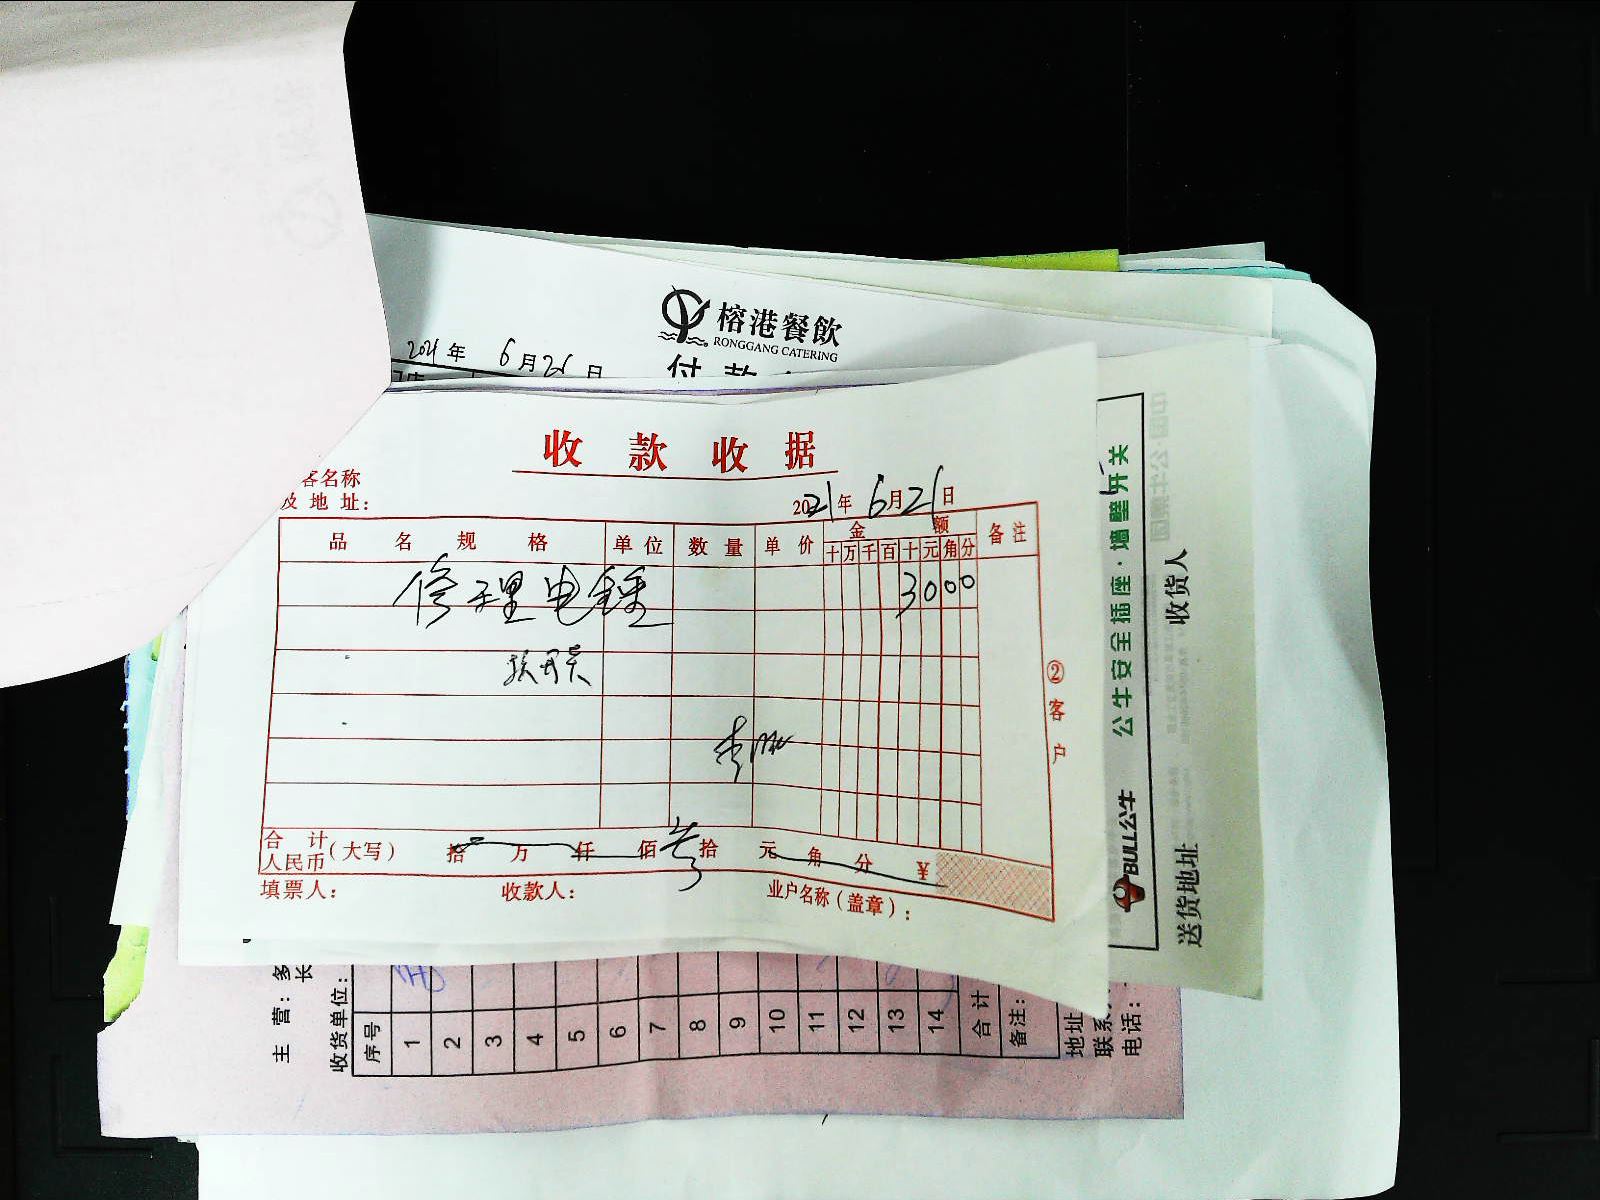 榕港餐飲
RONGGANG CATERING
2021年 6月26日
付款
收款收据
客名称
及地址：
2021年6月21日
品名规格 单位 数量 单价 金额 备注
十万千百十元角分
修理电锤 3000
换开关
②客户
合计
人民币（大写） 拾 万 仟 佰 叁拾 元 角 分 ￥
填票人： 收款人： 业户名称（盖章）：
公牛安全插座·墙壁开关
BULL公牛
收货人
送货地址
主营：多
长
收货单位：
序号 1 2 3 4 5 6 7 8 9 10 11 12 13 14 合计
备注：
地址
联系
电话：